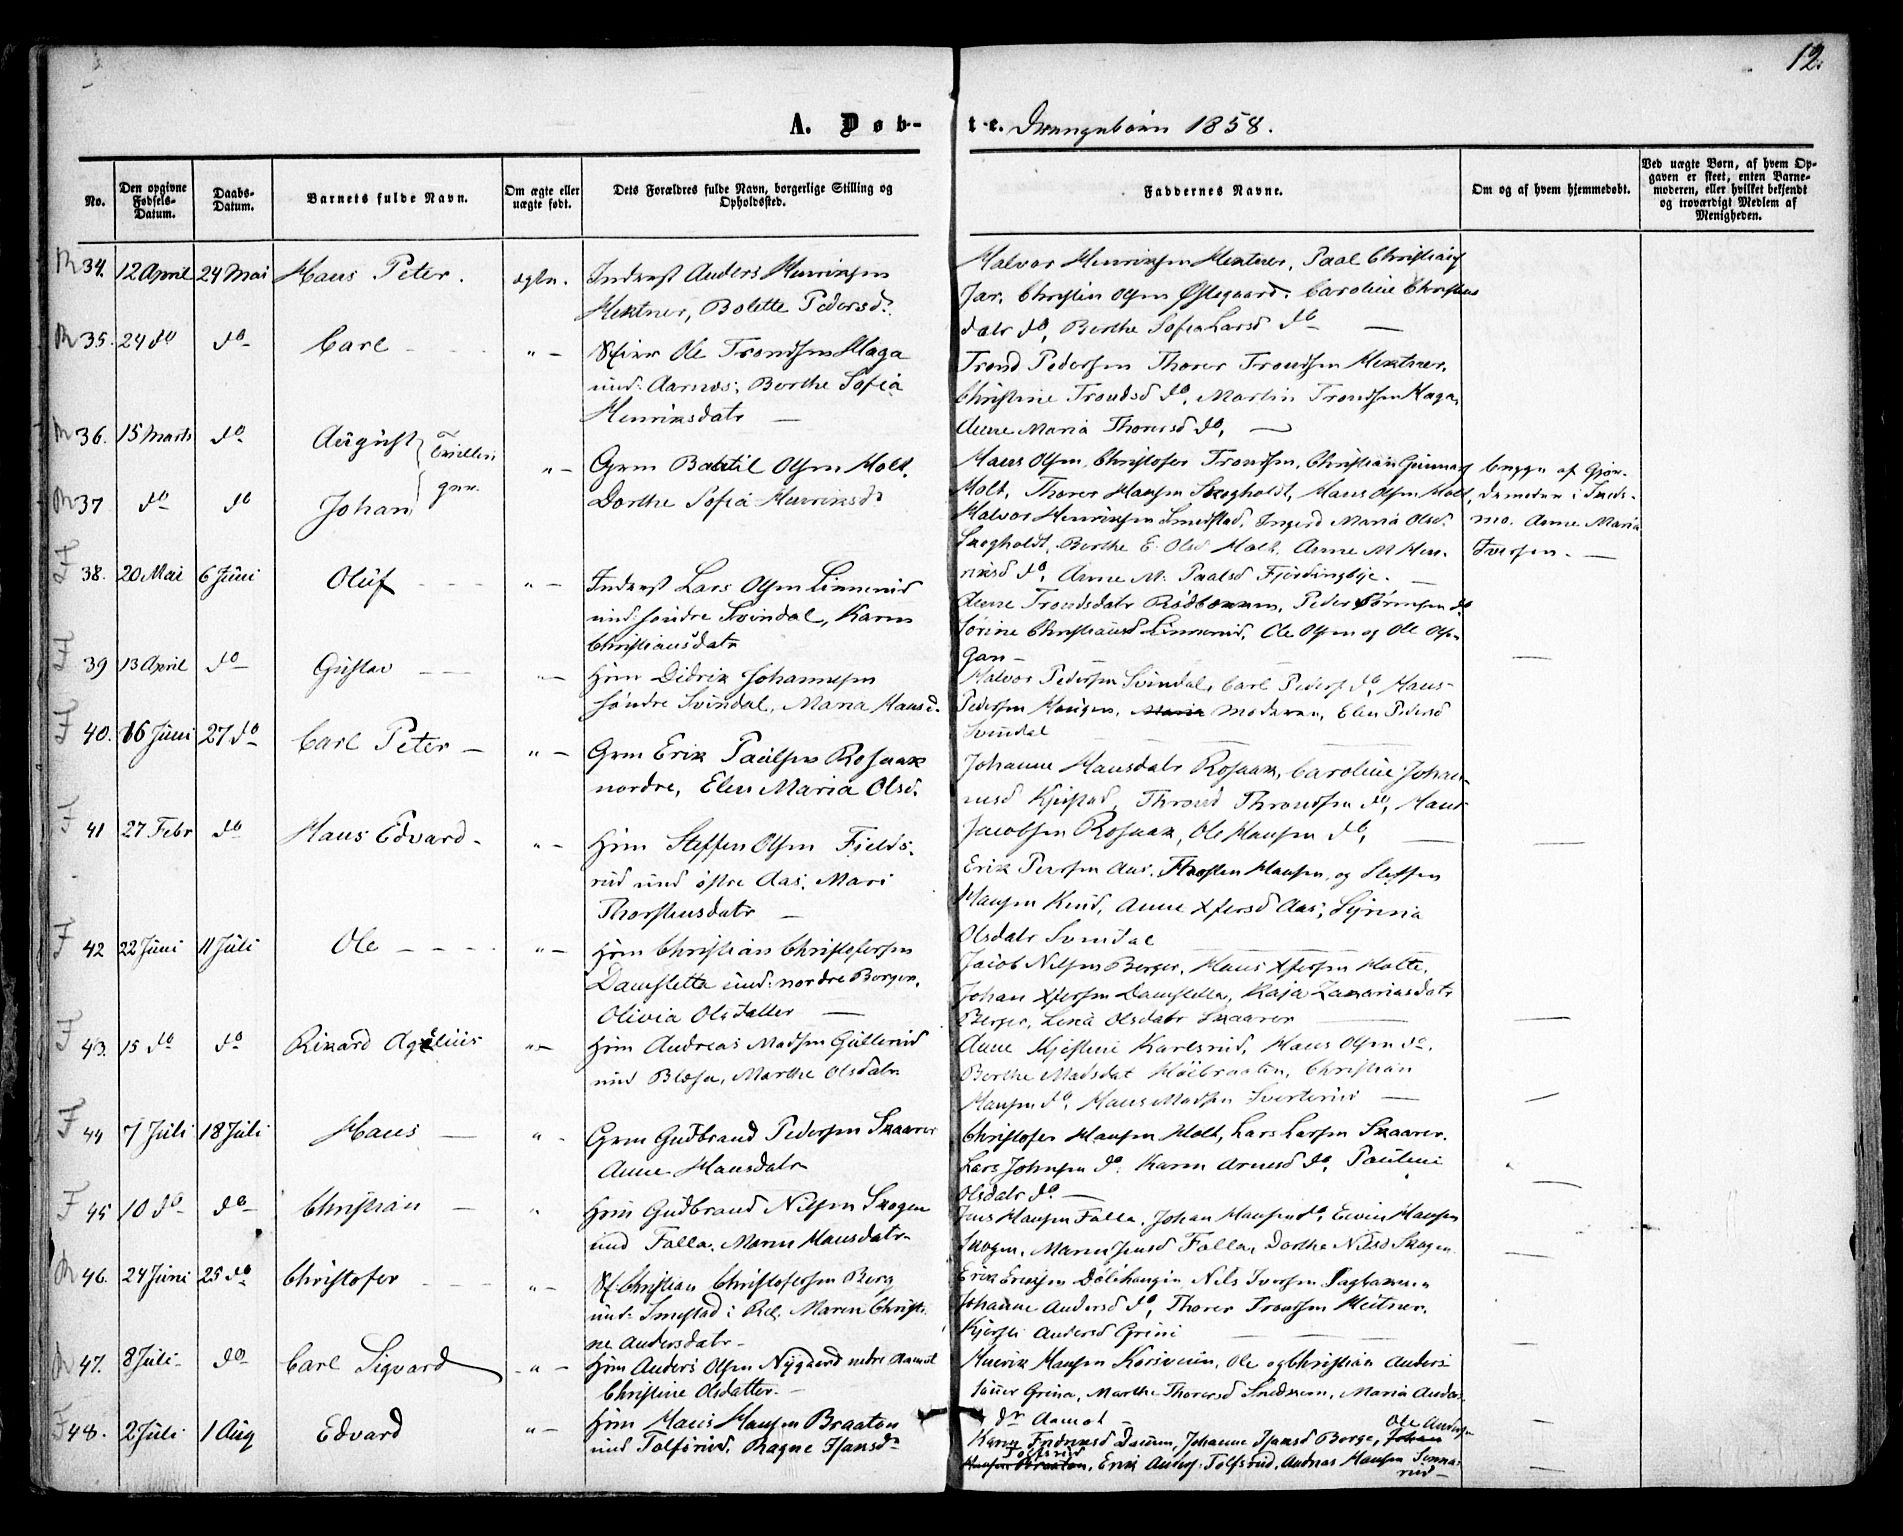 12.
A. Døb-
te. Drengebørn 1858.
No.
Den opgivne Fødsels-Datum.
Daabs-Datum.
Barnets fulde Navn.
Om ægte eller uægte født.
Dets Forældres fulde Navn, borgerlige Stilling og Opholdssted.
Faddernes Navne.
Om og af hvem hjemmedøbt.
Ved uægte Børn, af hvem Opgaven er skeet, enten Barnemoderen, eller hvilket bekjendt og troværdigt Medlem af Menigheden.
34. 12 April 24 Mai Hans Peter. ægte.
Inderst Anders Henriksen
Hektner, Bolette Pedersd.
Halvor Henriksen Hektner, Paal Christians
Jar, Christen Olsen Østegaard, Caroline Christens
datr do, Berthe Sofia Larsd do
35. 24 do do Carl
Ole Trondsen Haga
und: Aarnæs, Berthe Sofia
Henriksdatr
Trond Pedersen Thorer Trondsen Hektner,
Christine Trondsd do, Martin Trondsen Haga,
Anne Maria Thorersd do,
36. 15 Marts do August Tvillin
37 do do Johan ger.
Grm Bertil Olsen Holt,
Dorthe Sofia Henriksd
Hans Olsen, Christofer Trondsen, Christian Gunnars
Holt, Thorer Hansen Skogholdt, Hans Olsen Holt,
Halvor Henriksen Smedstad, Ingerd Maria Olsd
Skogholdt, Berthe E. Olsd Holt, Anne M Hen-
riksd do, Anne M. Paalsd Fjerdingbye.
begge af Gjor-
demoderen i Skeds-
mo. Anne Maria
Iversen.
38. 20 Mai 6 Juni Oluf
Inderst Lars Olsen Linnerud
und: søndre Svindal, Karen
Christiansdatr
Anne Trondsdatr Rødbakken, Peder Sørensen do
Sørine Christiansd Linnerud, Ole Olsen og Ole Ols
39 13 April do Gustav
Hm Didrik Johannesen
søndre Svindal, Maria Hansd.
Halvor Pedersen Svindal, Carl Peders do, Hans
Pedersen Haugen, Maria Moderen, Elen Pedersd
Svindal
40. 16 Juni 27 do Carl Peter
Grm Erik Paulsen Rosnak
nordre, Elen Maria Olsd.
Johanne Hansdatr Rosnak, Caroline Johan-
nesd Kjeistad, Thrond Throndsen do, Hans
Jacobsen Rosnak, Ole Hansen do,
41 27 Febr do Hans Edvard
Hm Steffen Olsen Fjelds-
rud und østre Aas, Mari
Thorstensdatr
Erik Persen Aas, Thorsten Hansen, og Steffen
Hansen Krud, Anne Xfersd Aas,
Olsdatr Svindal
42 22 Juni 11 Juli Ole
Hm Christian Christofersen
Damsletta und: nordre Berger,
Olivia Olsdatter
Jacob Nilsen Berger, Hans Xfersen Holte,
Johan Xfersen Damsletta, Kaja Zakariasdatr
Berger, Lena Olsdatr Skaarer
43. 15 do do Rikard Agelius
Hm Andreas Madsen Gullerud
und Blæsa, Marthe Olsdatr
Anne Kjestine Karlsrud, Hans Olsen do,
Berthe Madsdat Høibraaten, Christian
Hansen do, Hans Madsen Sverterud
44 7 Juli 18 Juli Hans
Grm Gudbrand Pedersen Skaarer
Anne Hansdatr
Christofer Hansen Holt, Lars Larsen Skaarer,
Lars Johnsen do. Karen Arnesd do, Pauline
Olsdatr do
45 10 do do Christian
Hm Gudbrand Nilsen Skogen
und Falla, Maren Hansdatr
Jens Hansen Falla, Johan Hansen do, Even Hansen
Skogen, Maren Jensd Falla, Dorthe Nilsd Skogen.
46. 24 Juni 25 do Christofer
Christian Christofersen Berg
und: Smestad i Rel. Maren Christi-
ne Andersdatr
Erik Eriksen Dølihaugen Nils Iversen Fagbakken
Johanne Andersd do, Thorer Trondsen Heitner,
Kjersti Andersd Grini
47. 8 Juli do Carl Sigvard
Hm Anders Olsen Nygaard nedre Aamot
Christine Olsdatter
Henrik Hansen Korsveien, Ole og Christian Anders
sønner Grina, Marthe Thorersd, Maria Anders-
dr Aamot
48. 2 Juli 1 Aug Edvard
Hm Hans Hansen Braaten
und Tolfsrud, Ragne Hansd
Karen Fredriksd Dammen, Johanne Hansd Berge, Johan Ole Anders
Hansen Braaten Tolfsrud, Erik Anders: Tolfsrud, Andreas Hansen Sinna-
rud